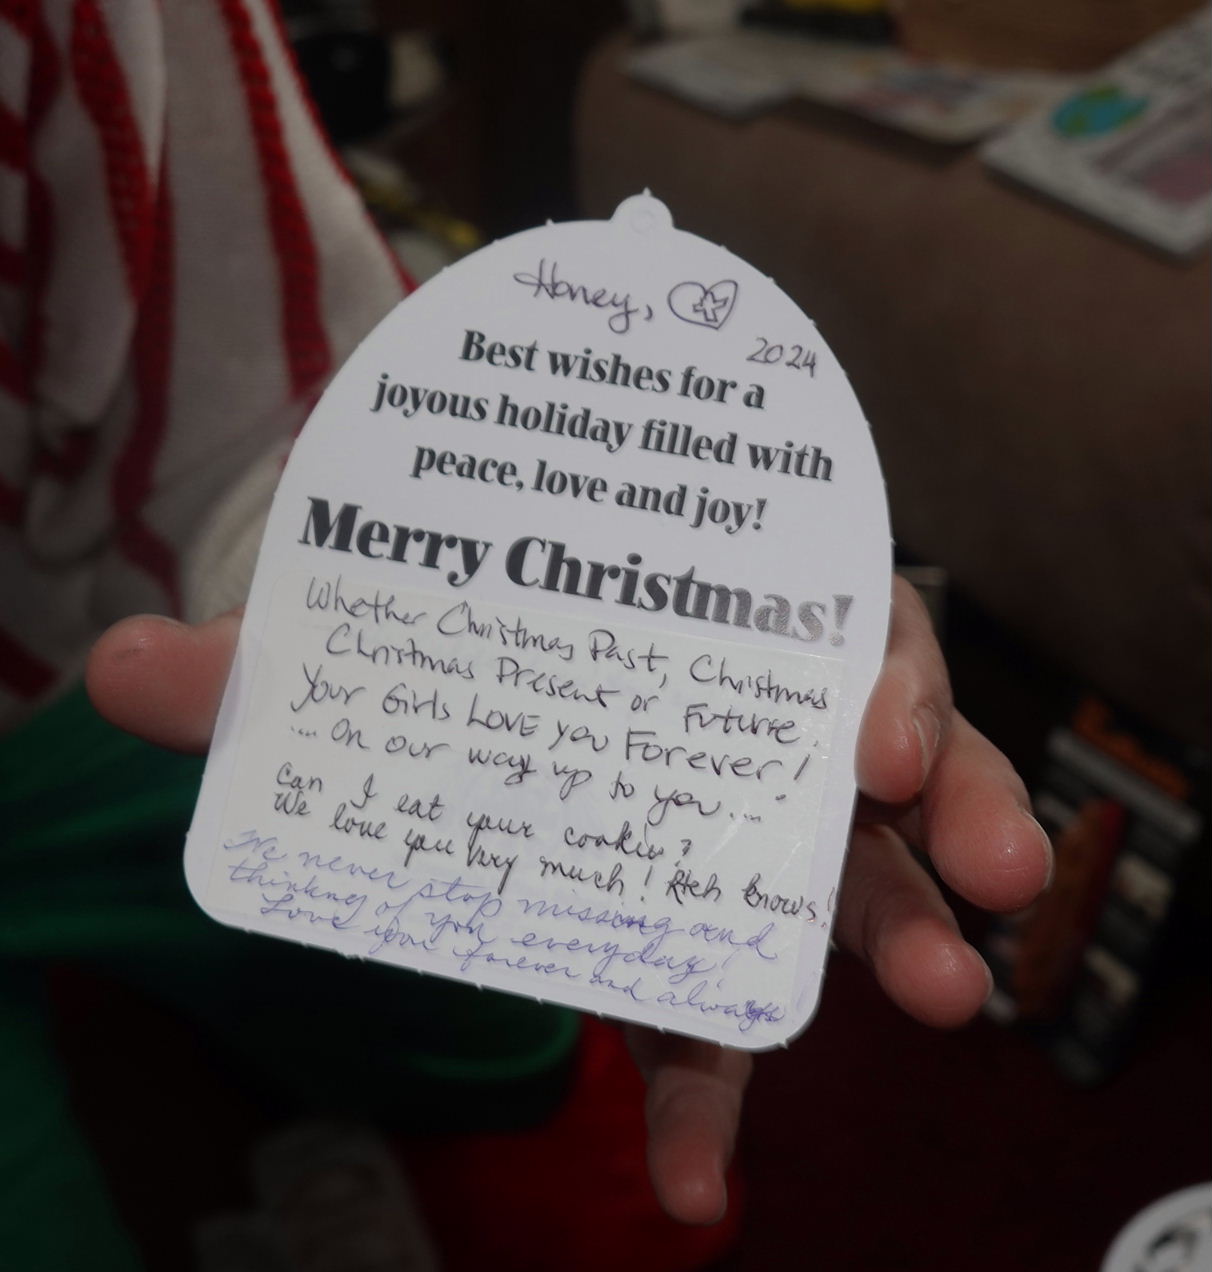 Honey,
2024
Best wishes for a
joyous holiday filled with
peace, love and joy!
Merry Christmas!
Whether Christmas Past, Christmas
Christmas Present or Future,
Your Girls LOVE you Forever!
.... On our way up to you....
Can I eat your cookies?
We love you very much! Rich knows!
We never stop missing and
thinking of you everyday!
Love you forever and always